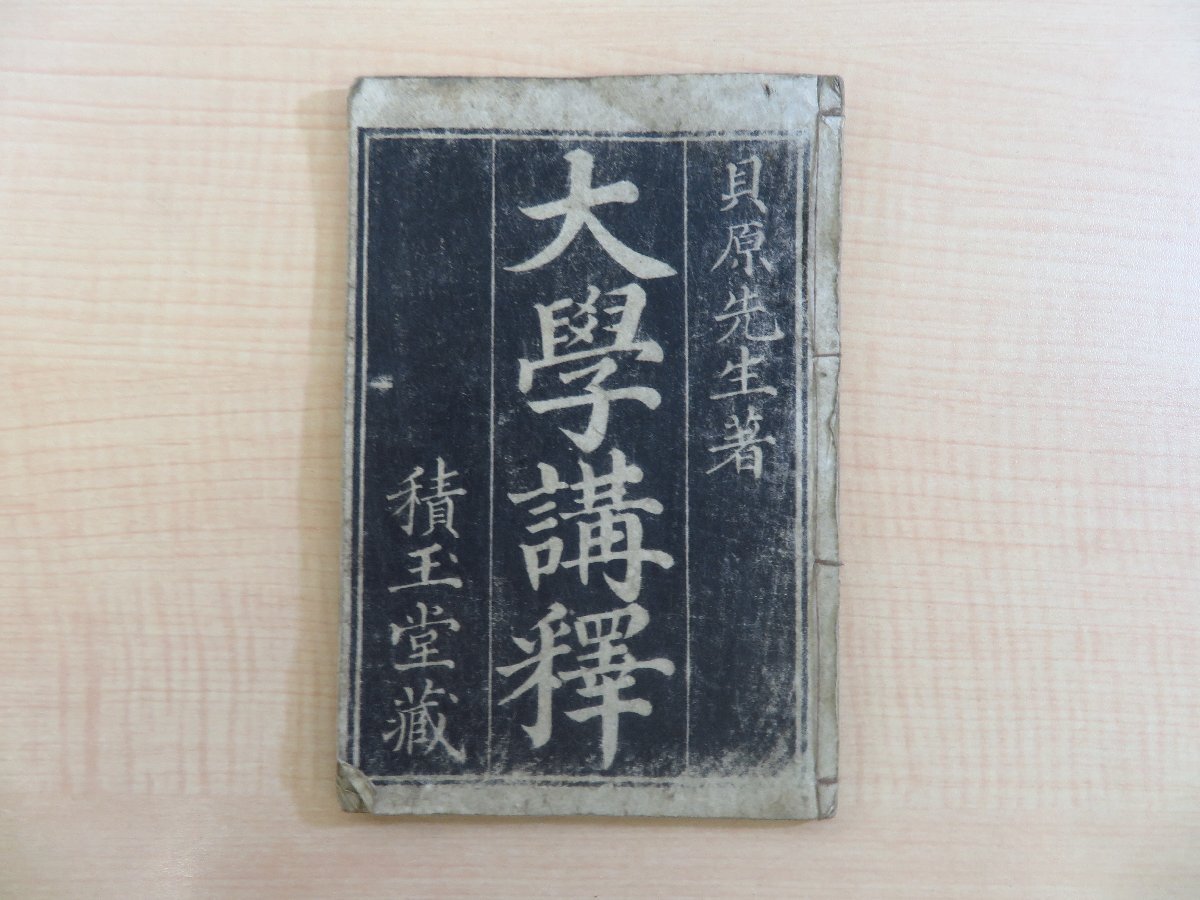 貝原先生著
大學講釋
積玉堂藏